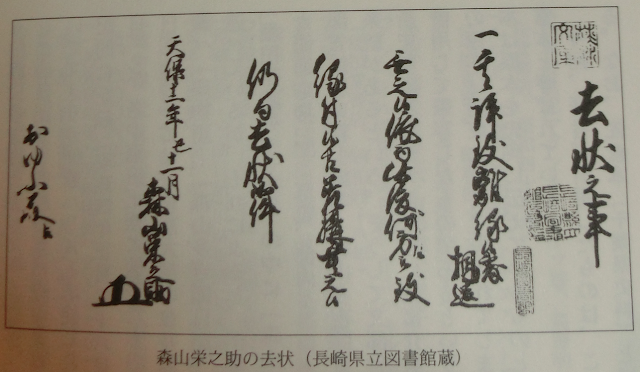 去状之事
一其許致離縁候 相違
無之候 後何方に致
縁付候共差構無之候
仍而去状如件
天保十二年丑十一月
森山栄之助
おゆふ
森山栄之助の去状（長崎県立図書館蔵）